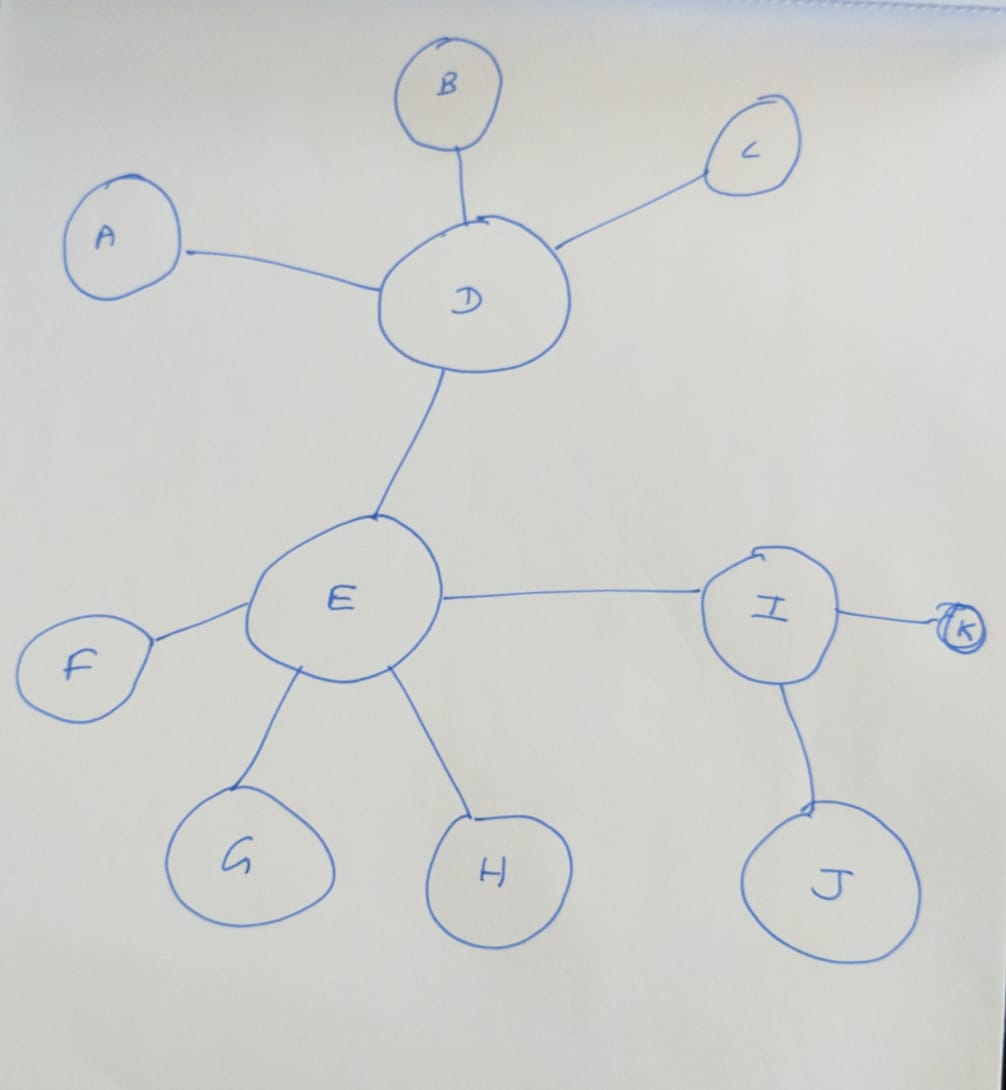 B
C
A
D
E
I
K
F
G
H
J